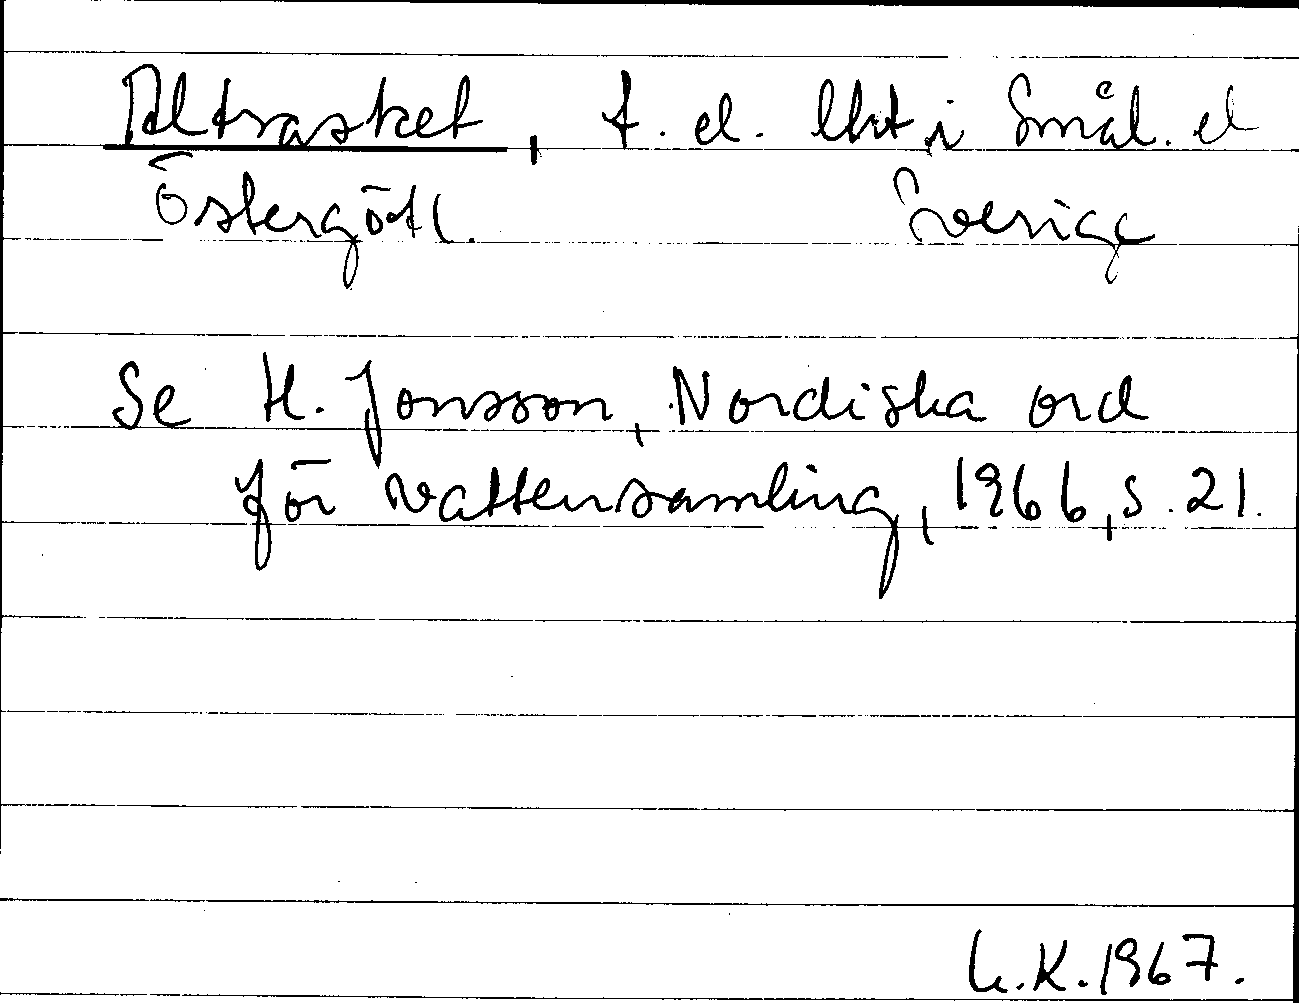 Altrasket, t. el. lht i Smål. el
Östergötl. Sverige
Se H. Jonsson, Nordiska ord
för vattensamling, 1966, s. 21.
L.K. 1967.